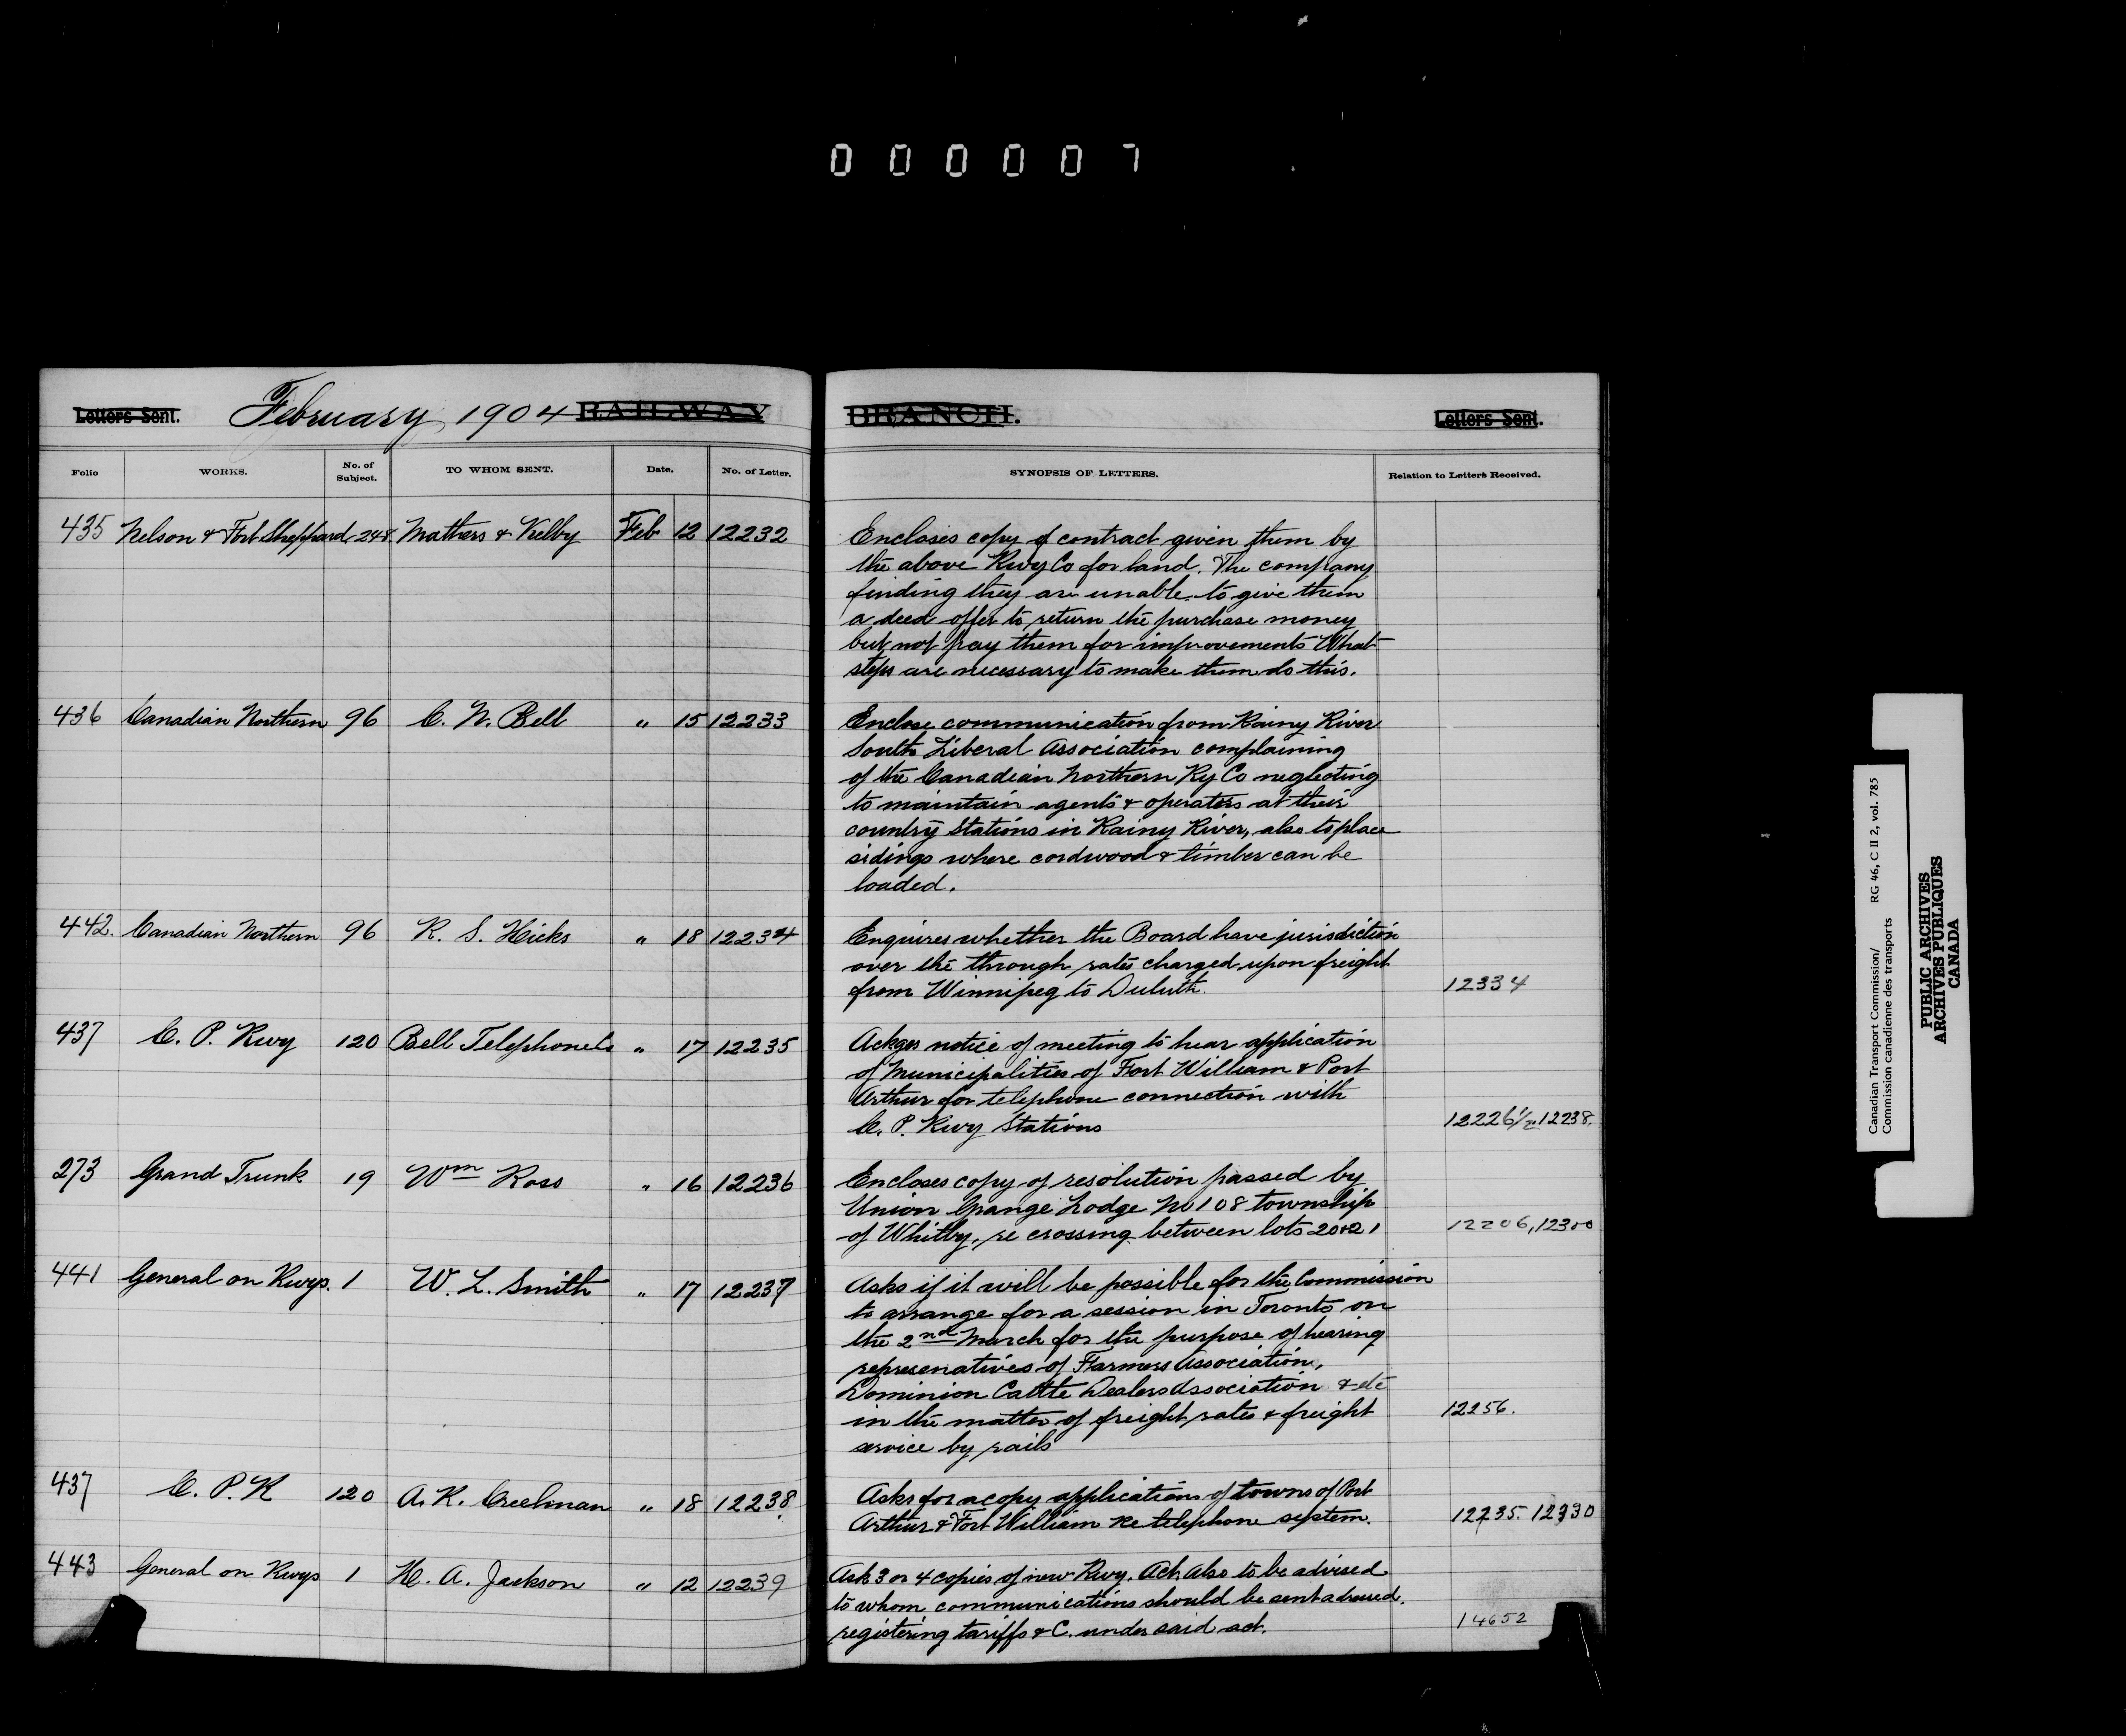 0 0 0 0 0 7
Letters Sent. February 1904 RAILWAY BRANCH. Letters Sent.
Folio WORKS. No. of Subject. TO WHOM SENT. Date. No. of Letter. SYNOPSIS OF LETTERS. Relation to Letters Received.
435 Nelson & Fort Sheppard 248 Mathers & Kelby Feb 12 12232 Encloses copy of contract given them by
the above Rwy Co for land. The company
finding they are unable to give them
a deed offer to return the purchase money
but not pay them for improvements What
steps are necessary to make them do this.
436 Canadian Northern 96 C. N. Bell " 15 12233 Enclose communication from Rainy River
South Liberal Association complaining
of the Canadian Northern Ry Co neglecting
to maintain agents & operators at their
country stations in Rainy River, also to place
sidings where cordwood & timber can be
loaded.
442. Canadian Northern 96 R. S. Hicks " 18 12234 Enquires whether the Board have jurisdiction
over the through rates charged upon freight
from Winnipeg to Duluth. 12334
437 C. P. Rwy 120 Bell Telephone Co " 17 12235 Ackges notice of meeting to hear application
of Municipalities of Fort William & Port
Arthur for telephone connection with
C. P. Rwy Stations 12226½ 12238.
273 Grand Trunk 19 Wm Ross " 16 12236 Encloses copy of resolution passed by
Union Grange Lodge No 108 township
of Whitby, re crossing between lots 20 & 21 12206, 12300
441 General on Rwys. 1 W. L. Smith " 17 12237 Asks if it will be possible for the Commission
to arrange for a session in Toronto on
the 2nd March for the purpose of hearing
represenatives of Farmers Association,
Dominion Cattle Dealers Association & etc
in the matter of freight rates & freight 12256.
service by rails
437 C. P. R 120 A. R. Creelman " 18 12238. Asks for a copy applications of towns of Port
Arthur & Fort William re telephone system. 12235. 12330
443 General on Rwys 1 H. A. Jackson " 12 12239 Ask 3 or 4 copies of new Rwy. Act. Also to be advised
to whom communications should be sent
registering tariffs & C. under said act. 14652
Canadian Transport Commission/ RG 46, C II 2, vol. 785
Commission canadienne des transports
PUBLIC ARCHIVES
ARCHIVES PUBLIQUES
CANADA